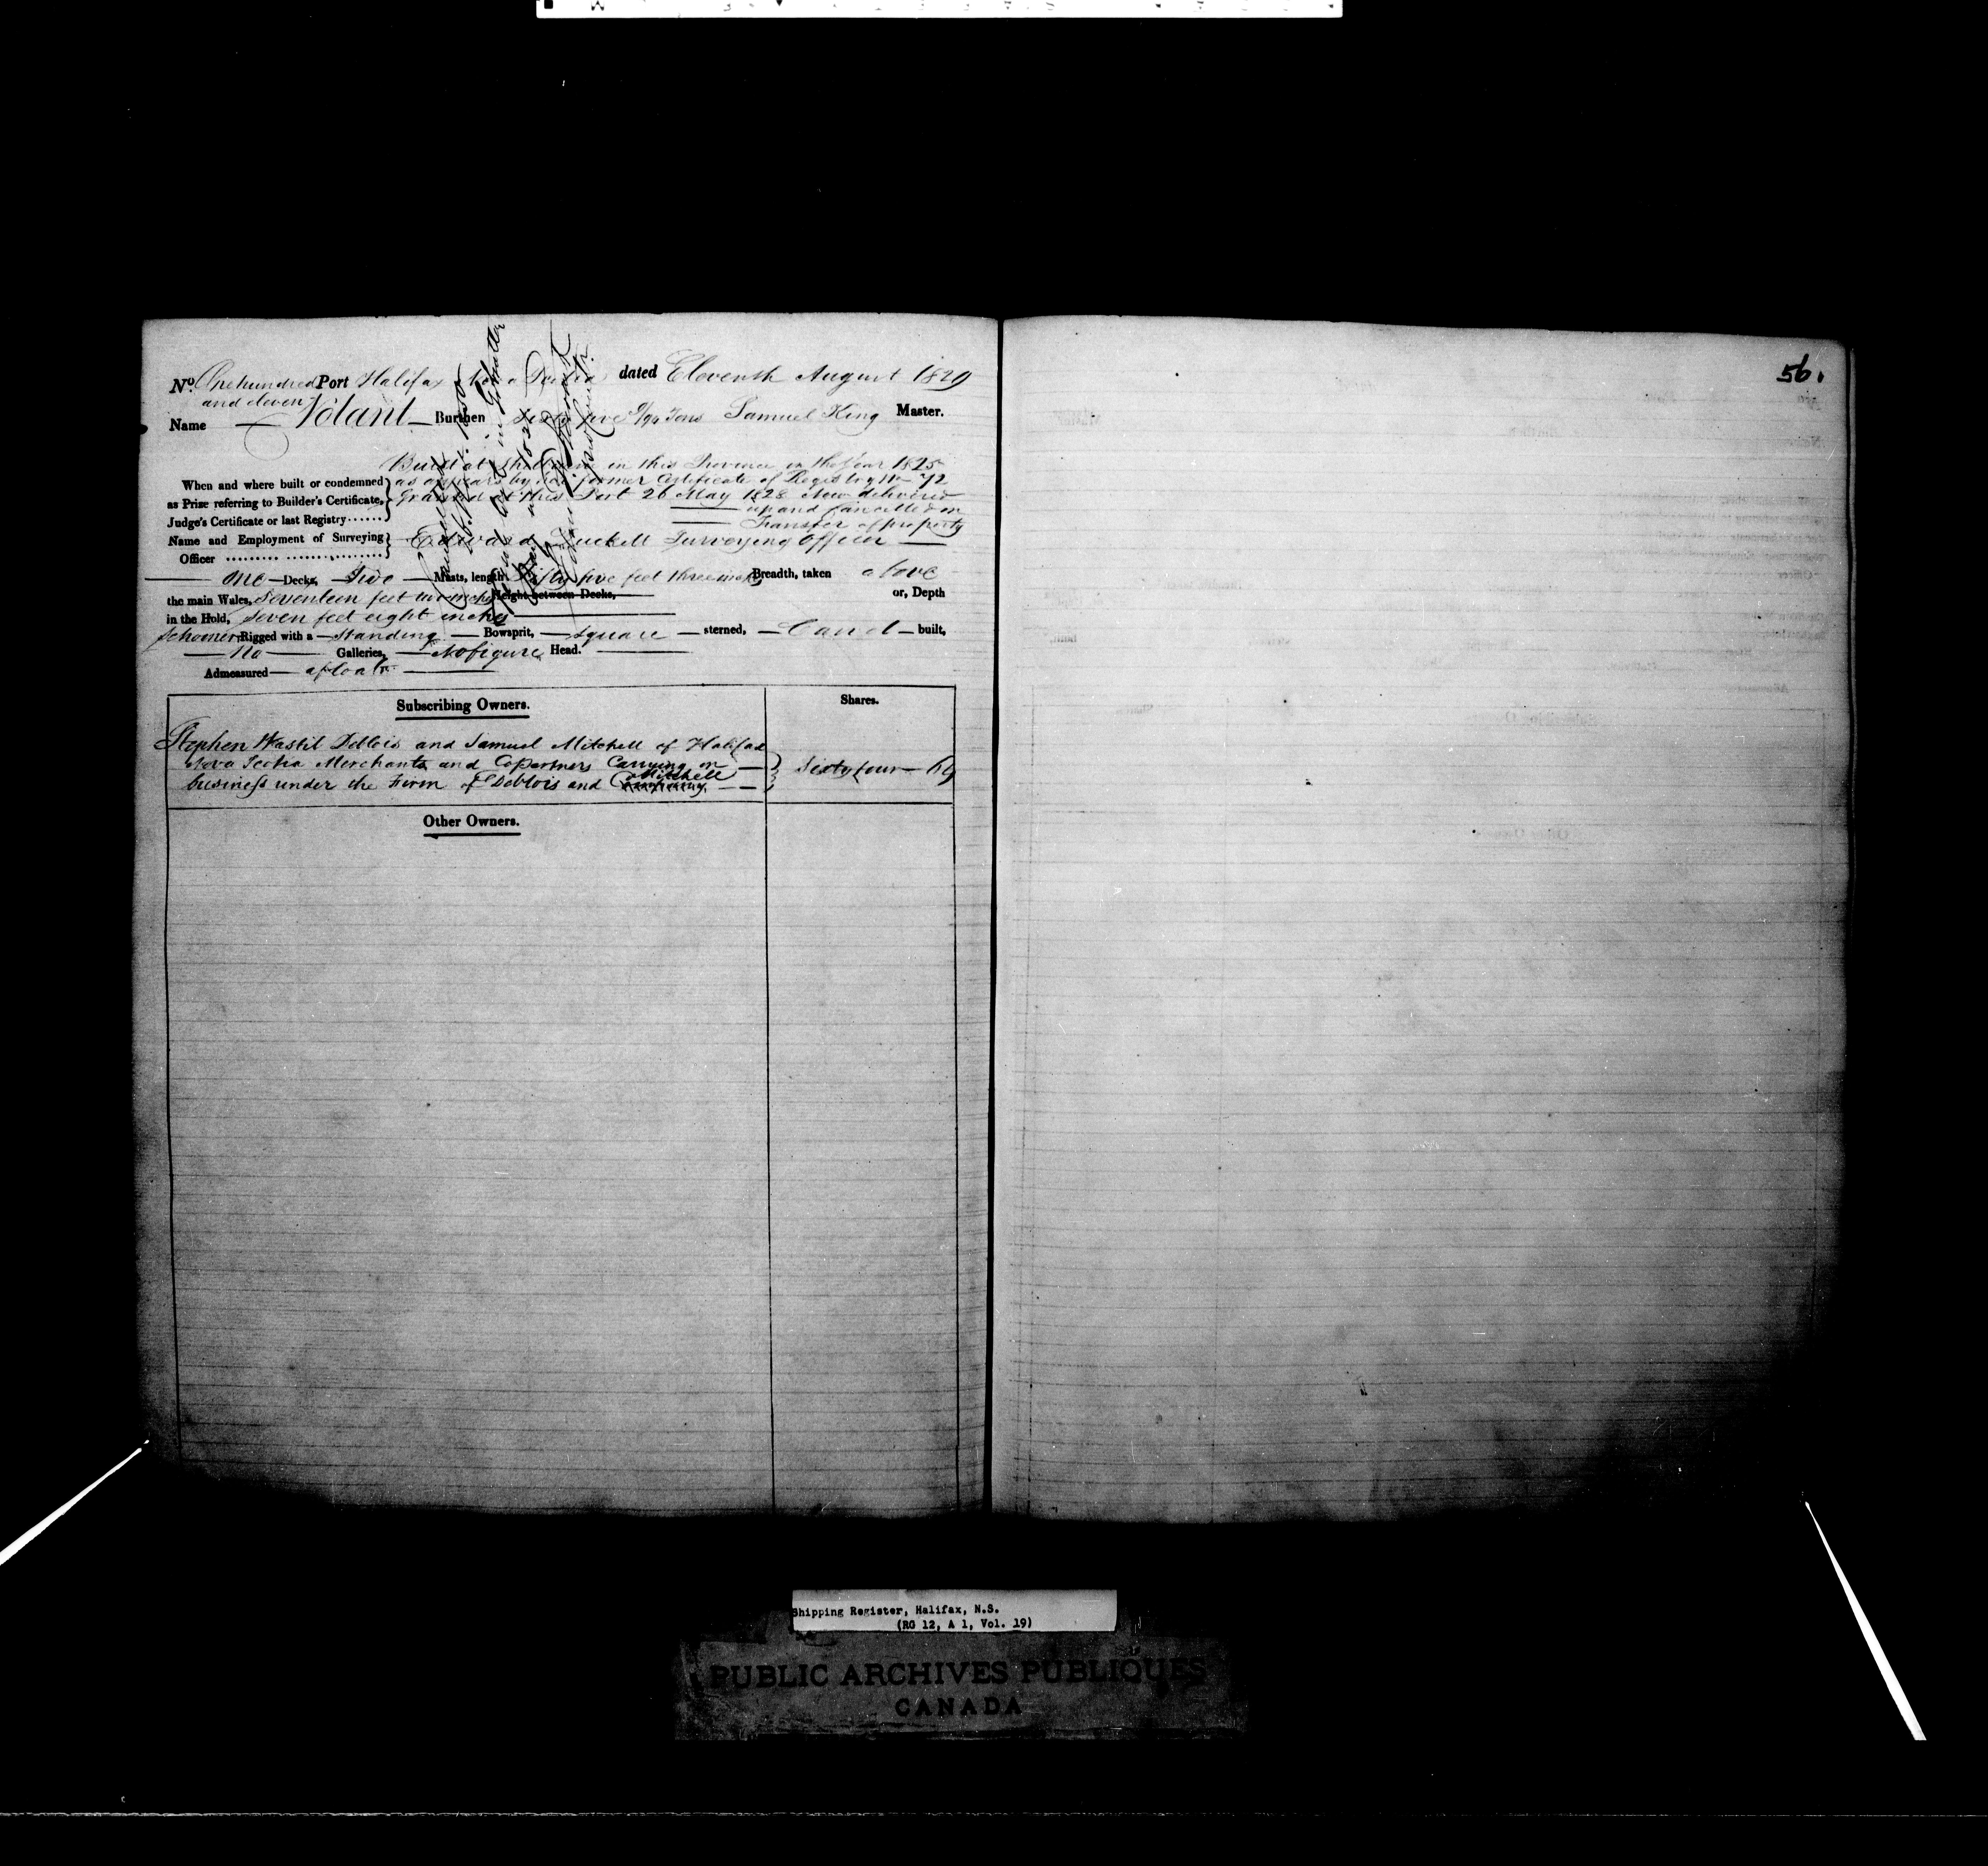 No. One hundred Port Halifax Nova Scotia dated Eleventh August 1829
and eleven
Name Volant Burthen Sixty five 9/94 Tons Samuel King Master.
Built at Shelburne in this Province in the Year 1825
When and where built or condemned as appears by former Certificate of Registry No 72
as Prize referring to Builder's Certificate, Granted at this Port 26 May 1828 Now delivered
Judge's Certificate or last Registry...... up and Cancelled on
Transfer of property
Name and Employment of Surveying Edward Duckett Surveying Officer
Officer
One Decks, Two Masts, length Fifty five feet three inches Breadth, taken above
the main Wales, Seventeen feet two inches Height between Decks, or, Depth
in the Hold, Seven feet eight inches
Schooner Rigged with a Standing Bowsprit, Square sterned, Carvel built,
No Galleries, No figure Head.
Admeasured afloat
Subscribing Owners. Shares.
Stephen Wastil Deblois and Samuel Mitchell of Halifax
Nova Scotia Merchants and Copartners Carrying on
Mitchell
business under the Firm of Deblois and Company Sixty four 64
Other Owners.
56.
Shipping Register, Halifax, N.S.
(RG 12, A 1, Vol. 19)
PUBLIC ARCHIVES PUBLIQUES
CANADA